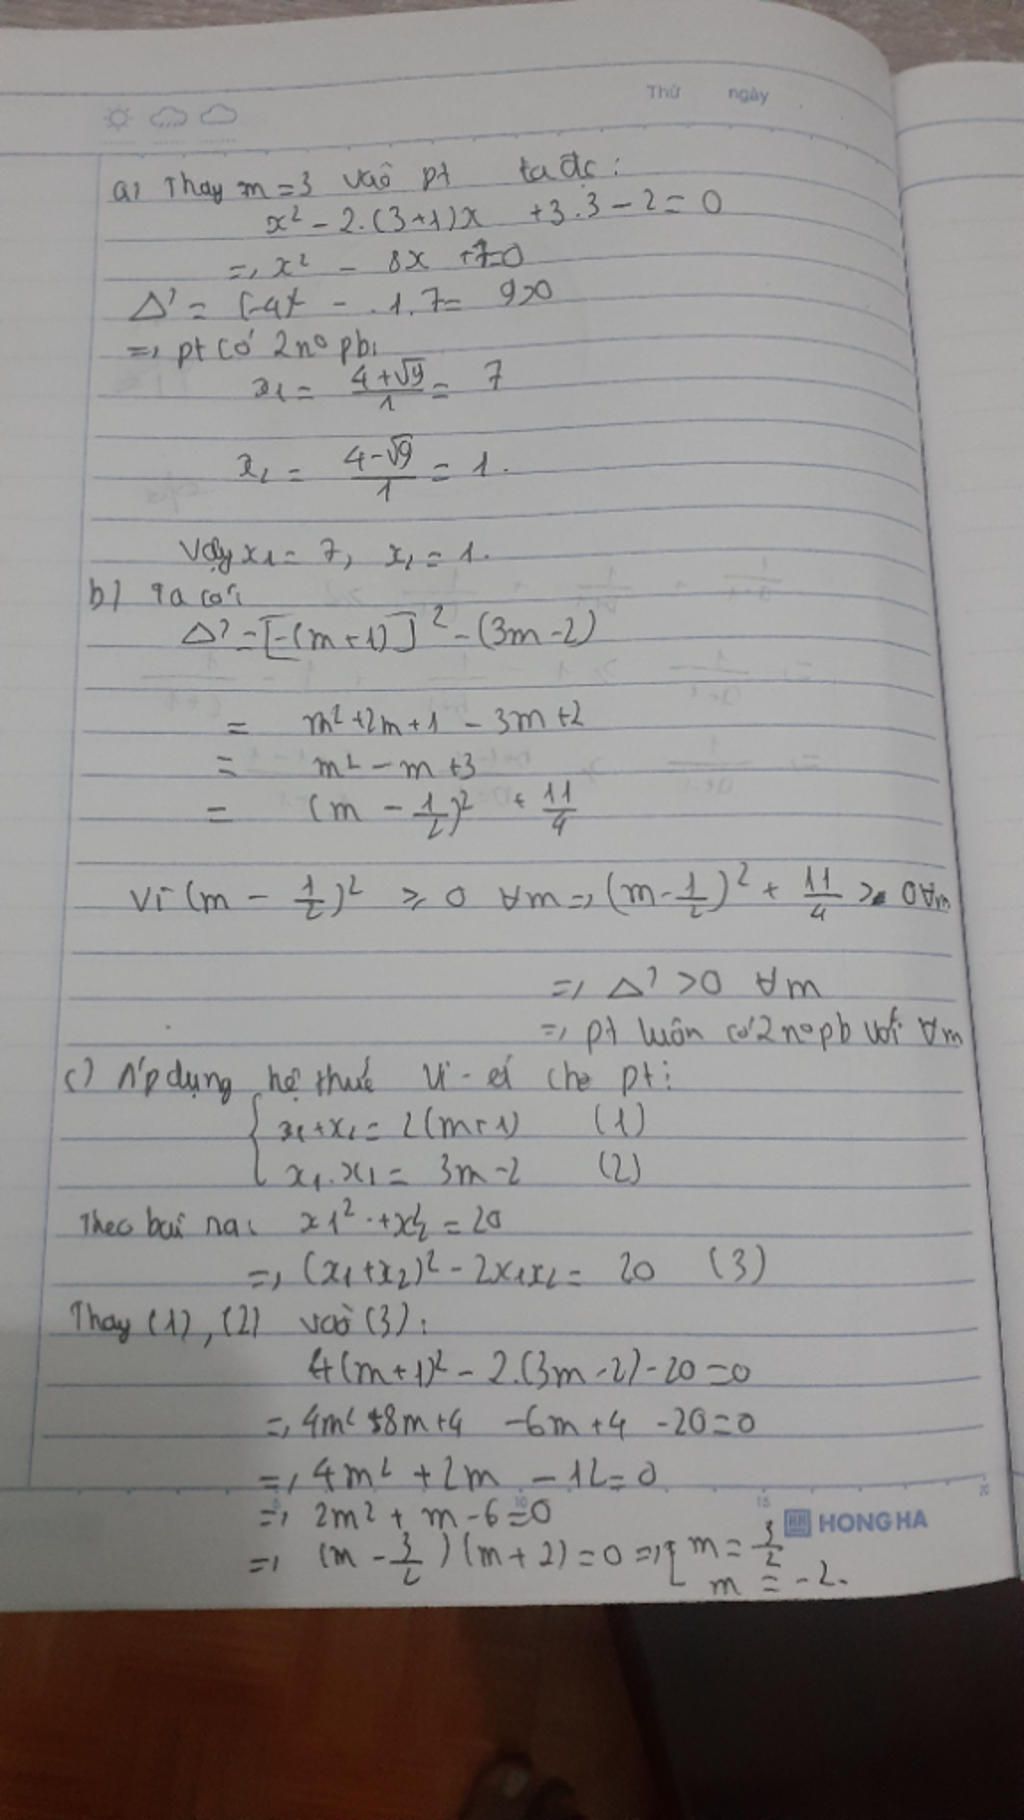 Thứ ngày
a) Thay m = 3 vào pt ta đc:
x² - 2.(3+1)x + 3.3 - 2 = 0
=> x² - 8x + 7 = 0
Δ' = (-4)² - 1.7 = 9 > 0
=> pt có 2 n° pb:
x₁ = (4+√9)/1 = 7
x₂ = (4-√9)/1 = 1.
Vậy x₁ = 7, x₂ = 1.
b) Ta có:
Δ' = [-(m+1)]² - (3m-2)
= m² + 2m + 1 - 3m + 2
= m² - m + 3
= (m - 1/2)² + 11/4
Vì (m - 1/2)² ≥ 0 ∀m => (m - 1/2)² + 11/4 > 0 ∀m
=> Δ' > 0 ∀m
=> pt luôn có 2 n° pb với ∀m
c) Áp dụng hệ thức Vi-ét cho pt:
{ x₁ + x₂ = 2(m+1) (1)
x₁.x₂ = 3m-2 (2)
Theo bài ra: x₁² + x₂² = 20
=> (x₁+x₂)² - 2x₁x₂ = 20 (3)
Thay (1), (2) vào (3):
4(m+1)² - 2.(3m-2) - 20 = 0
=> 4m² + 8m + 4 - 6m + 4 - 20 = 0
=> 4m² + 2m - 12 = 0
=> 2m² + m - 6 = 0
HONG HA
=> (m - 3/2)(m + 2) = 0 => [ m = 3/2
m = -2.